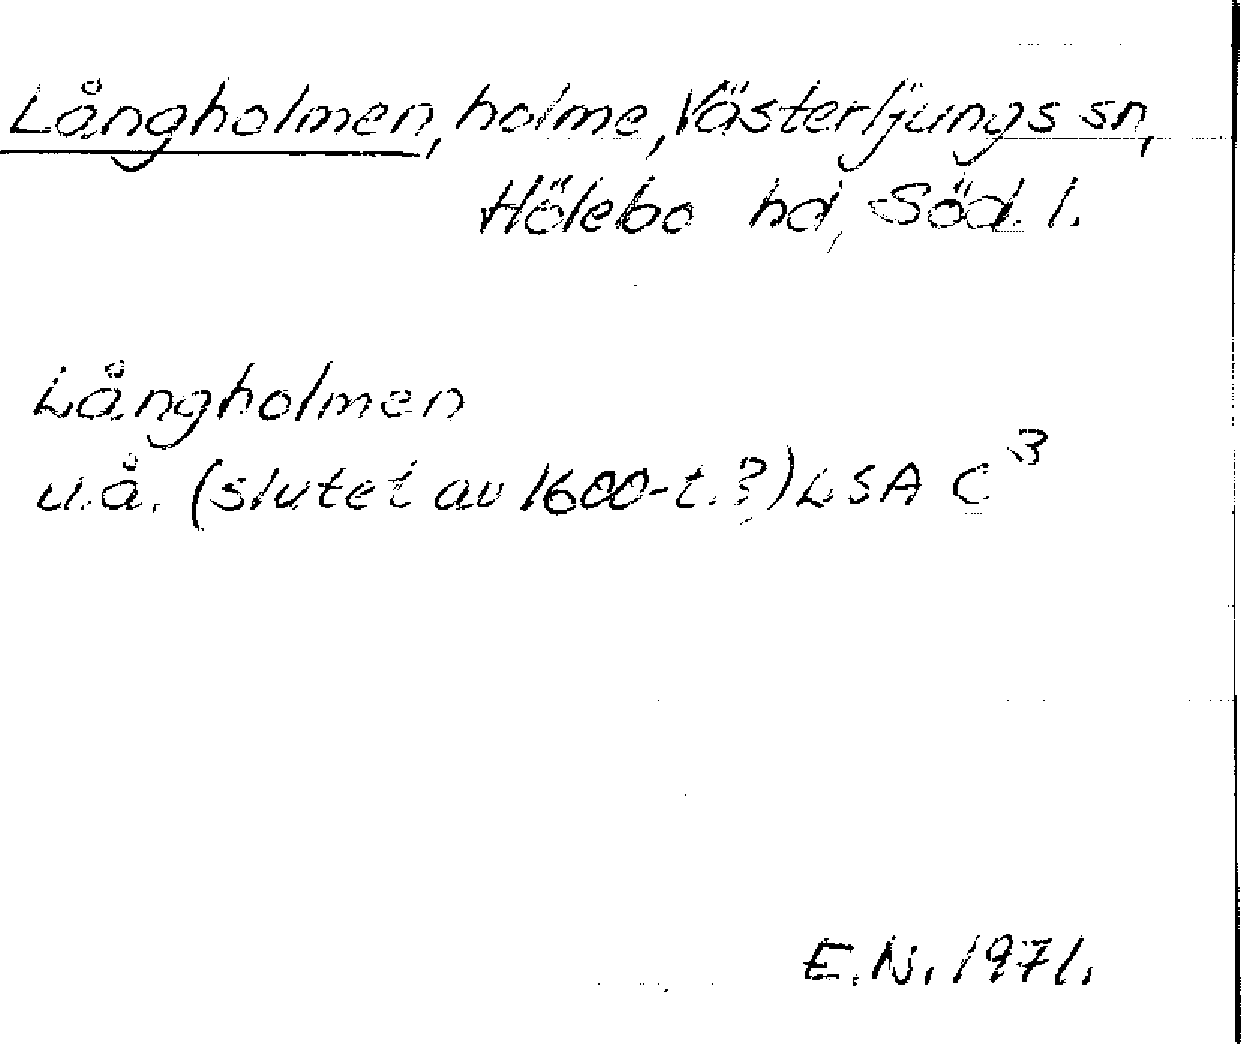 Långholmen, holme, Västerljungs sn,
Hölebo hd, Söd. l.
Långholmen
u.å. (slutet av 1600-t.?) LSA C³
E.N. 1971.